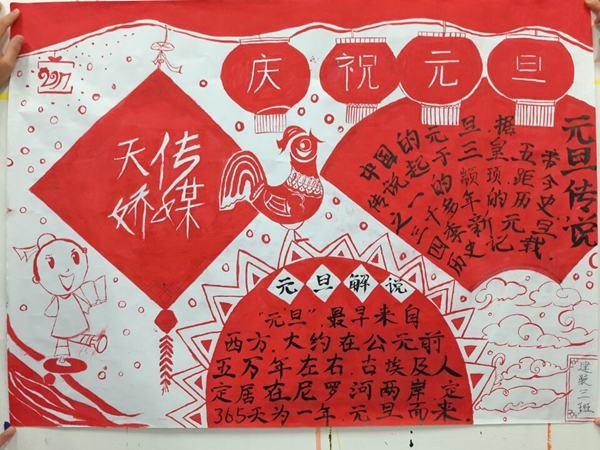 2017
庆祝元旦
天娇
传媒
元旦传说
中国的元旦,据
传说起于三皇五帝
之一的颛顼,距今
三千多年的历史.
四季新元旦
历史记载.
元旦解说
"元旦"最早来自
西方,大约在公元前
五万年左右,古埃及人
定居在尼罗河两岸定
365天为一年元旦而来.
建装三班